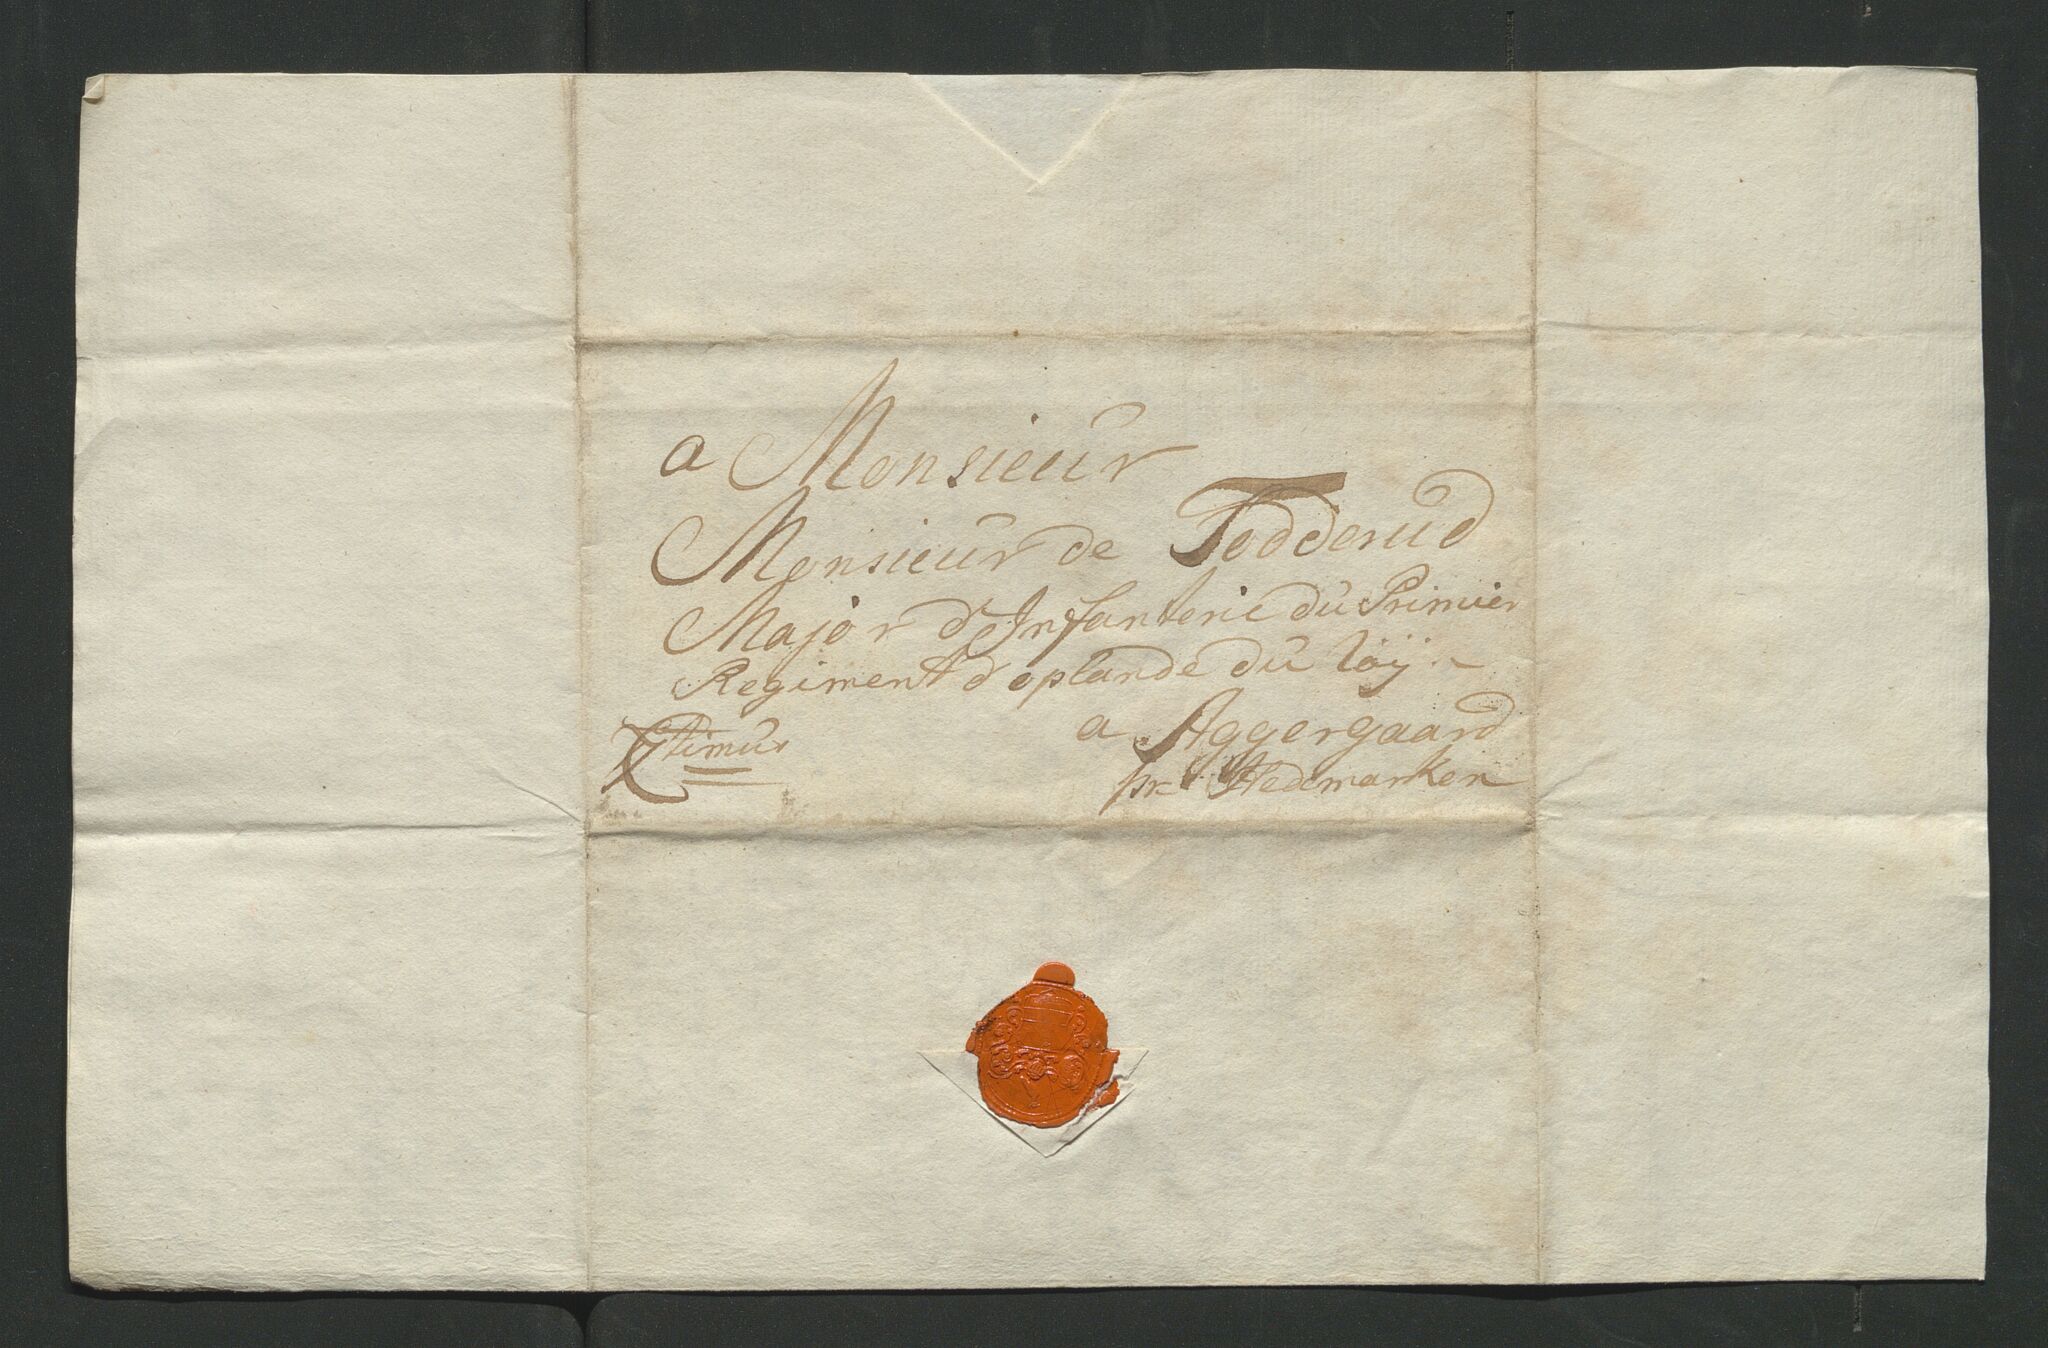 a Monsieur
Monsieur de Todderud
Major d'Infanterie du Primier
Regiment d'oplande du
a Aggergaard
pr Hedemarken